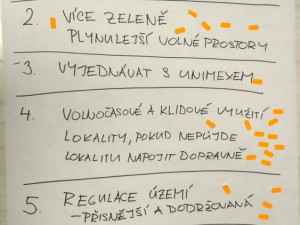 2. VÍCE ZELENĚ
PLYNULEJŠÍ VOLNÉ PROSTORY
3. VYJEDNÁVAT S UNIMEXEM
4. VOLNOČASOVÉ A KLIDOVÉ VYUŽITÍ
LOKALITY, POKUD NEPŮJDE
LOKALITU NAPOJIT DOPRAVNĚ
5. REGULACE ÚZEMÍ
– PŘISNĚJŠÍ A DODRŽOVANÁ